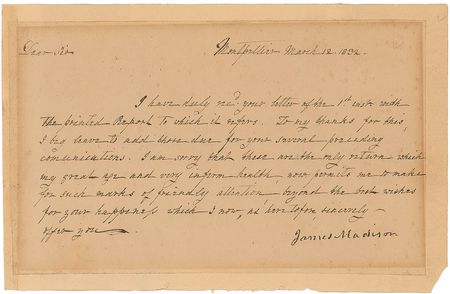 Dear Sir
Montpellier March 12 1832.
I have duly recd. your letter of the 1st inst. with
the printed Report to which it refers. To my thanks for this,
I beg leave to add those due for your several preceding
comunications. I am sorry that these are the only return which
my great age and very infirm health now permits me to make
for such marks of friendly attention beyond the best wishes
for your happiness which I now, as heretofore sincerely
offer you
James Madison